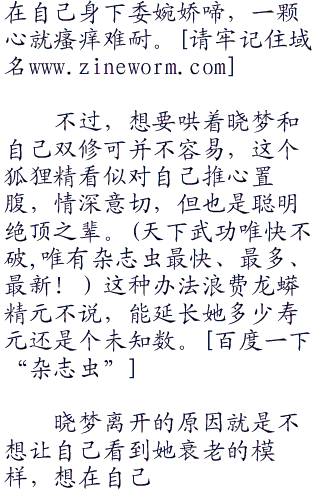 在自己身下委婉娇啼，一颗
心就瘙痒难耐。[请牢记住域
名www.zineworm.com]
不过，想要哄着晓梦和
自己双修可并不容易，这个
狐狸精看似对自己推心置
腹，情深意切，但也是聪明
绝顶之辈。(天下武功唯快不
破,唯有杂志虫最快、最多、
最新！) 这种办法浪费龙蟒
精元不说，能延长她多少寿
元还是个未知数。[百度一下
“杂志虫”]
晓梦离开的原因就是不
想让自己看到她衰老的模
样，想在自己